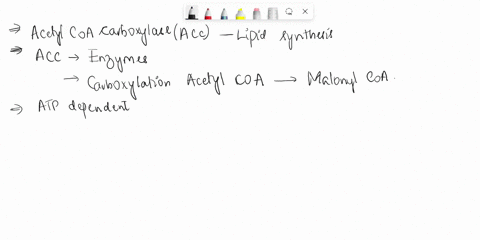 ⇒ Acetyl CoA carboxylase (ACC) — Lipid synthesis
⇒ ACC → Enzymes
→ Carboxylation Acetyl COA → Malonyl CoA.
⇒ ATP dependent